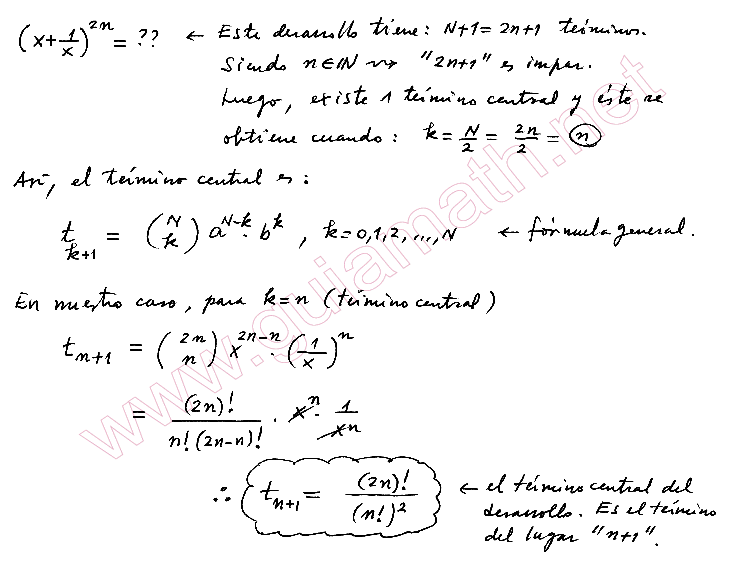 (x+1/x)^2n = ?? ← Este desarrollo tiene: N+1 = 2n+1 términos.
Siendo n∈ℕ ⇝ "2n+1" es impar.
Luego, existe 1 término central y éste se
obtiene cuando: k = N/2 = 2n/2 = n
Así, el término central es:
t_k+1 = (N k) a^N-k · b^k , k=0,1,2,...,N ← fórmula general.
En nuestro caso, para k=n (término central)
t_n+1 = (2n n) x^2n-n · (1/x)^n
= (2n)!/n!(2n-n)! · x^n · 1/x^n
∴ t_n+1 = (2n)!/(n!)^2 ← el término central del
desarrollo. Es el término
del lugar "n+1".
www.guiamath.net